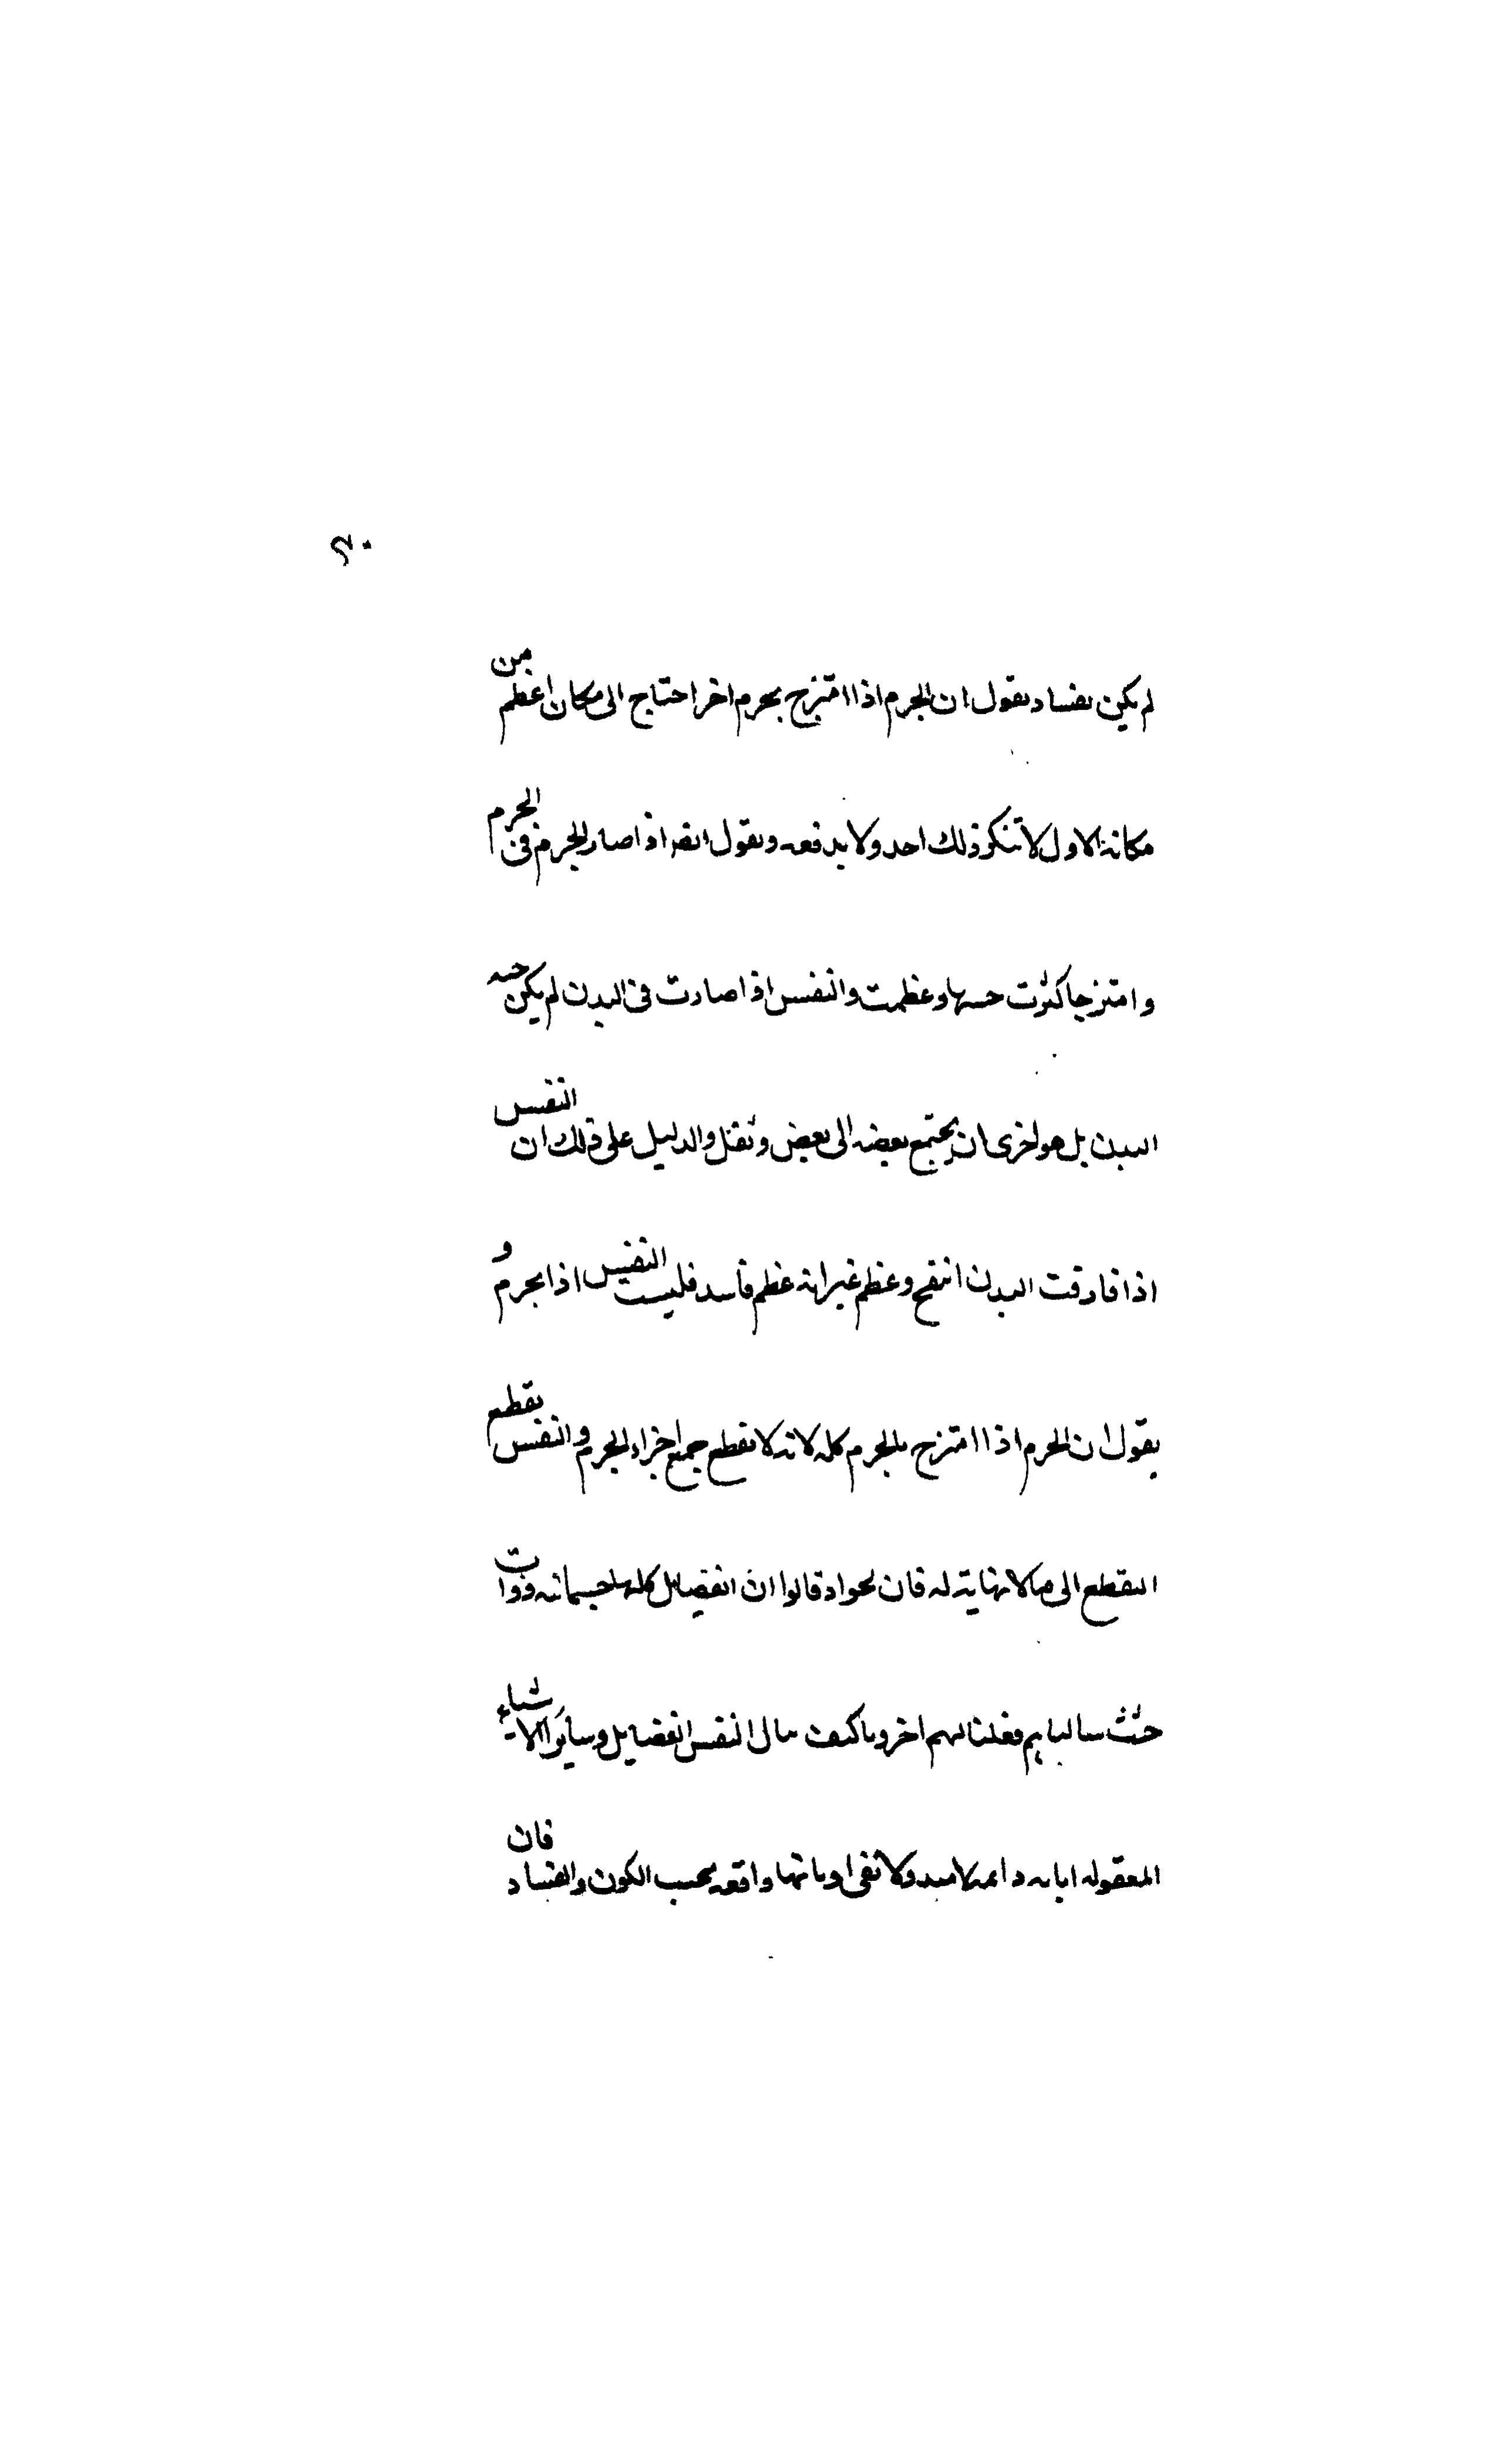 ٢٠
لم يكن بفساد بقول ان الجرم اذا امتزج بجرم اخر احتاج الى مكان اعظم من
مكانه الاول لا تنكر ذلك احد ولا يدفعه ونقول ايضا اذا صار الجرم فى الجرم
وامتزجا كثرت وعظمت والنفس اذا صارت فى البدن لم يكن
البدن بل هو احرى ان يجتمع بعضه الى بعض وتقل والدليل على ذلك ان النفس
اذا فارقت البدن انتفخ وعظم غير انه عظم فاسد فليست النفس اذا بجرم و
يقول ان الجرم اذا امتزج بالجرم كله لانه لا يقطع جميع اجزاء الجرم والنفس يقطع
التقطع الى ما لا نهاية له فان قالوا ان الفضايل كلها جسمانيه ذوات
فقلنا لهم اخرونا كيف ينال النفس الفضايل وساير الاشياء
المعقوله دايمه لا ولا تفنى او بانها واقعه تحت الكون والفساد فان